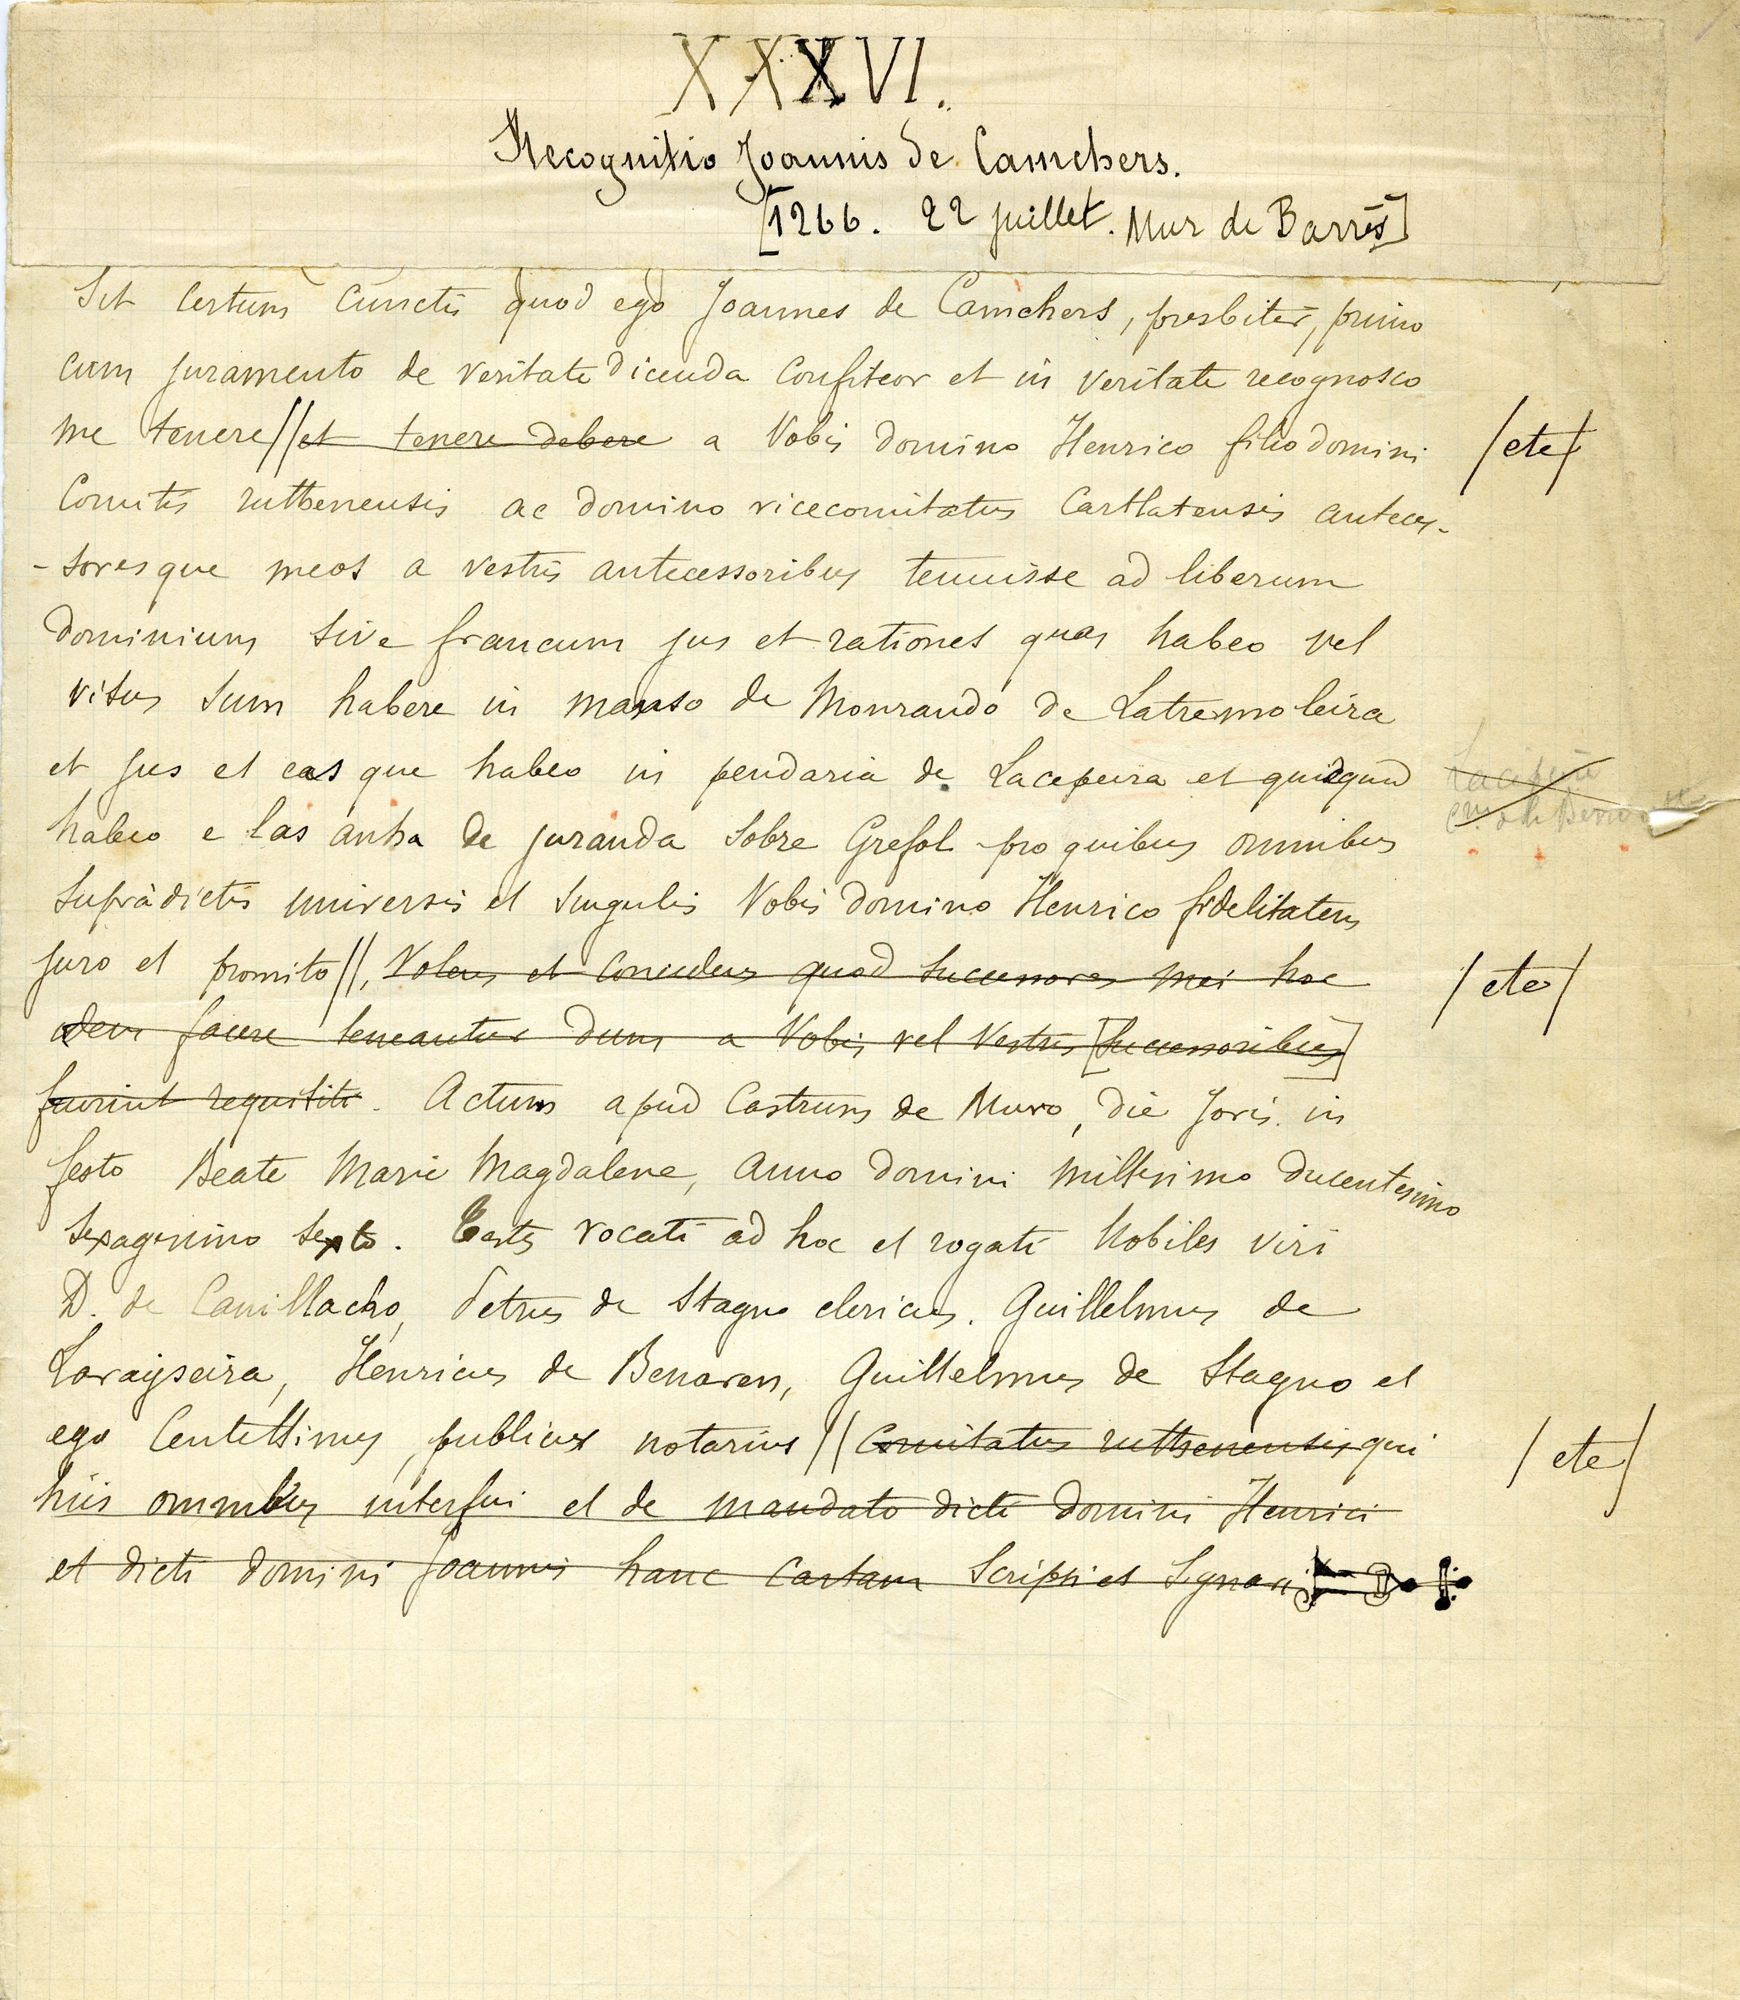 XXXVI.
Recognitio Joannis de Camchers.
[1266. 22 juillet. Mur de Barrès]
Sit certum cunctis quod ego Joannes de Camchers, presbiter, primo
cum juramento de veritate dicenda confiteor et in veritate recognosco
me tenere // et tenere debere a Vobis domino Henrico filio domini /etc/
Comitis ruthenensis ac domino vicecomitatus Carllatensis anteces-
-soresque meos a vestris antecessoribus tenuisse ad liberum
dominium sive francum jus et rationes quas habeo vel
visus sum habere in manso de Monrando de Latremoleira
et jus et eas que habeo in pendaria de Lacepeira et quidquid
habeo e las anha de juranda sobre Grefol pro quibus omnibus
supradictis universis et singulis Vobis domino Henrico fidelitatem
juro et promito //, Volens et concedens quod successores mei hoc /etc/
idem facere teneantur dum a Vobis vel Vestris [successoribus]
fuerint requisiti. Actum apud Castrum de Muro, die Jovis in
festo Beate Marie Magdalene, anno domini millesimo ducentesimo
sexagesimo sexto. Testes vocati ad hoc et rogati Nobiles viri
D. de Canillacho, Petrus de Stagno clericus. Guillelmus de
Lavaysseira, Henricus de Benaven, Guillelmus de Stagno et
ego Centullimus, publicus notarius // Comitatus ruthenensis qui /etc/
hiis omnibus interfui et de mandato dicti domini Henrici
et dicti domini Joannis hanc cartam scripsi et signavi